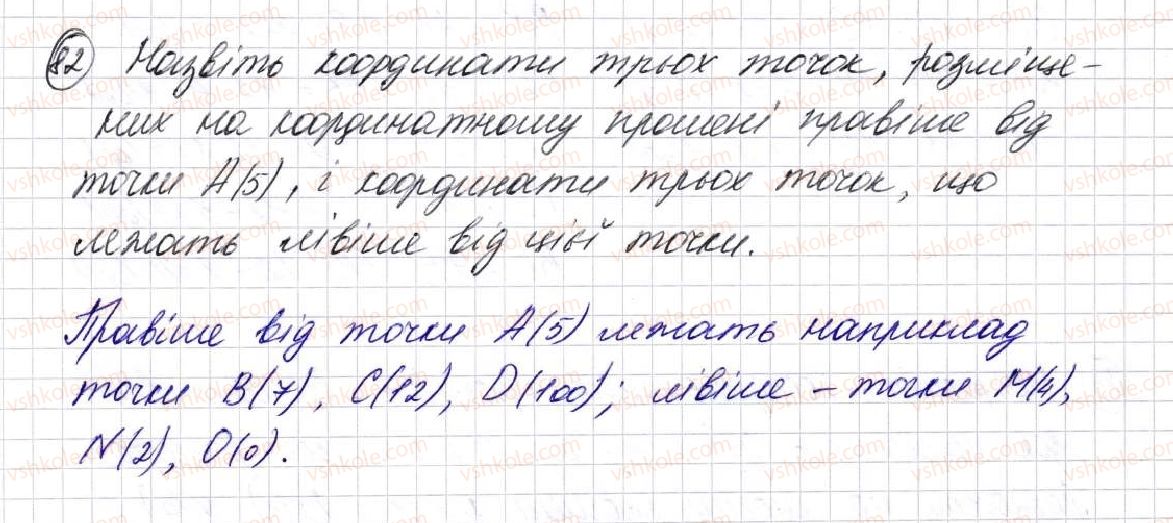 82 Назвіть координати трьох точок, розміще-
них на координатному промені правіше від
точки A(5), і координати трьох точок, що
лежать лівіше від цієї точки.
Правіше від точки A(5) лежать наприклад
точки B(7), C(12), D(100); лівіше – точки M(4),
N(2), O(0).